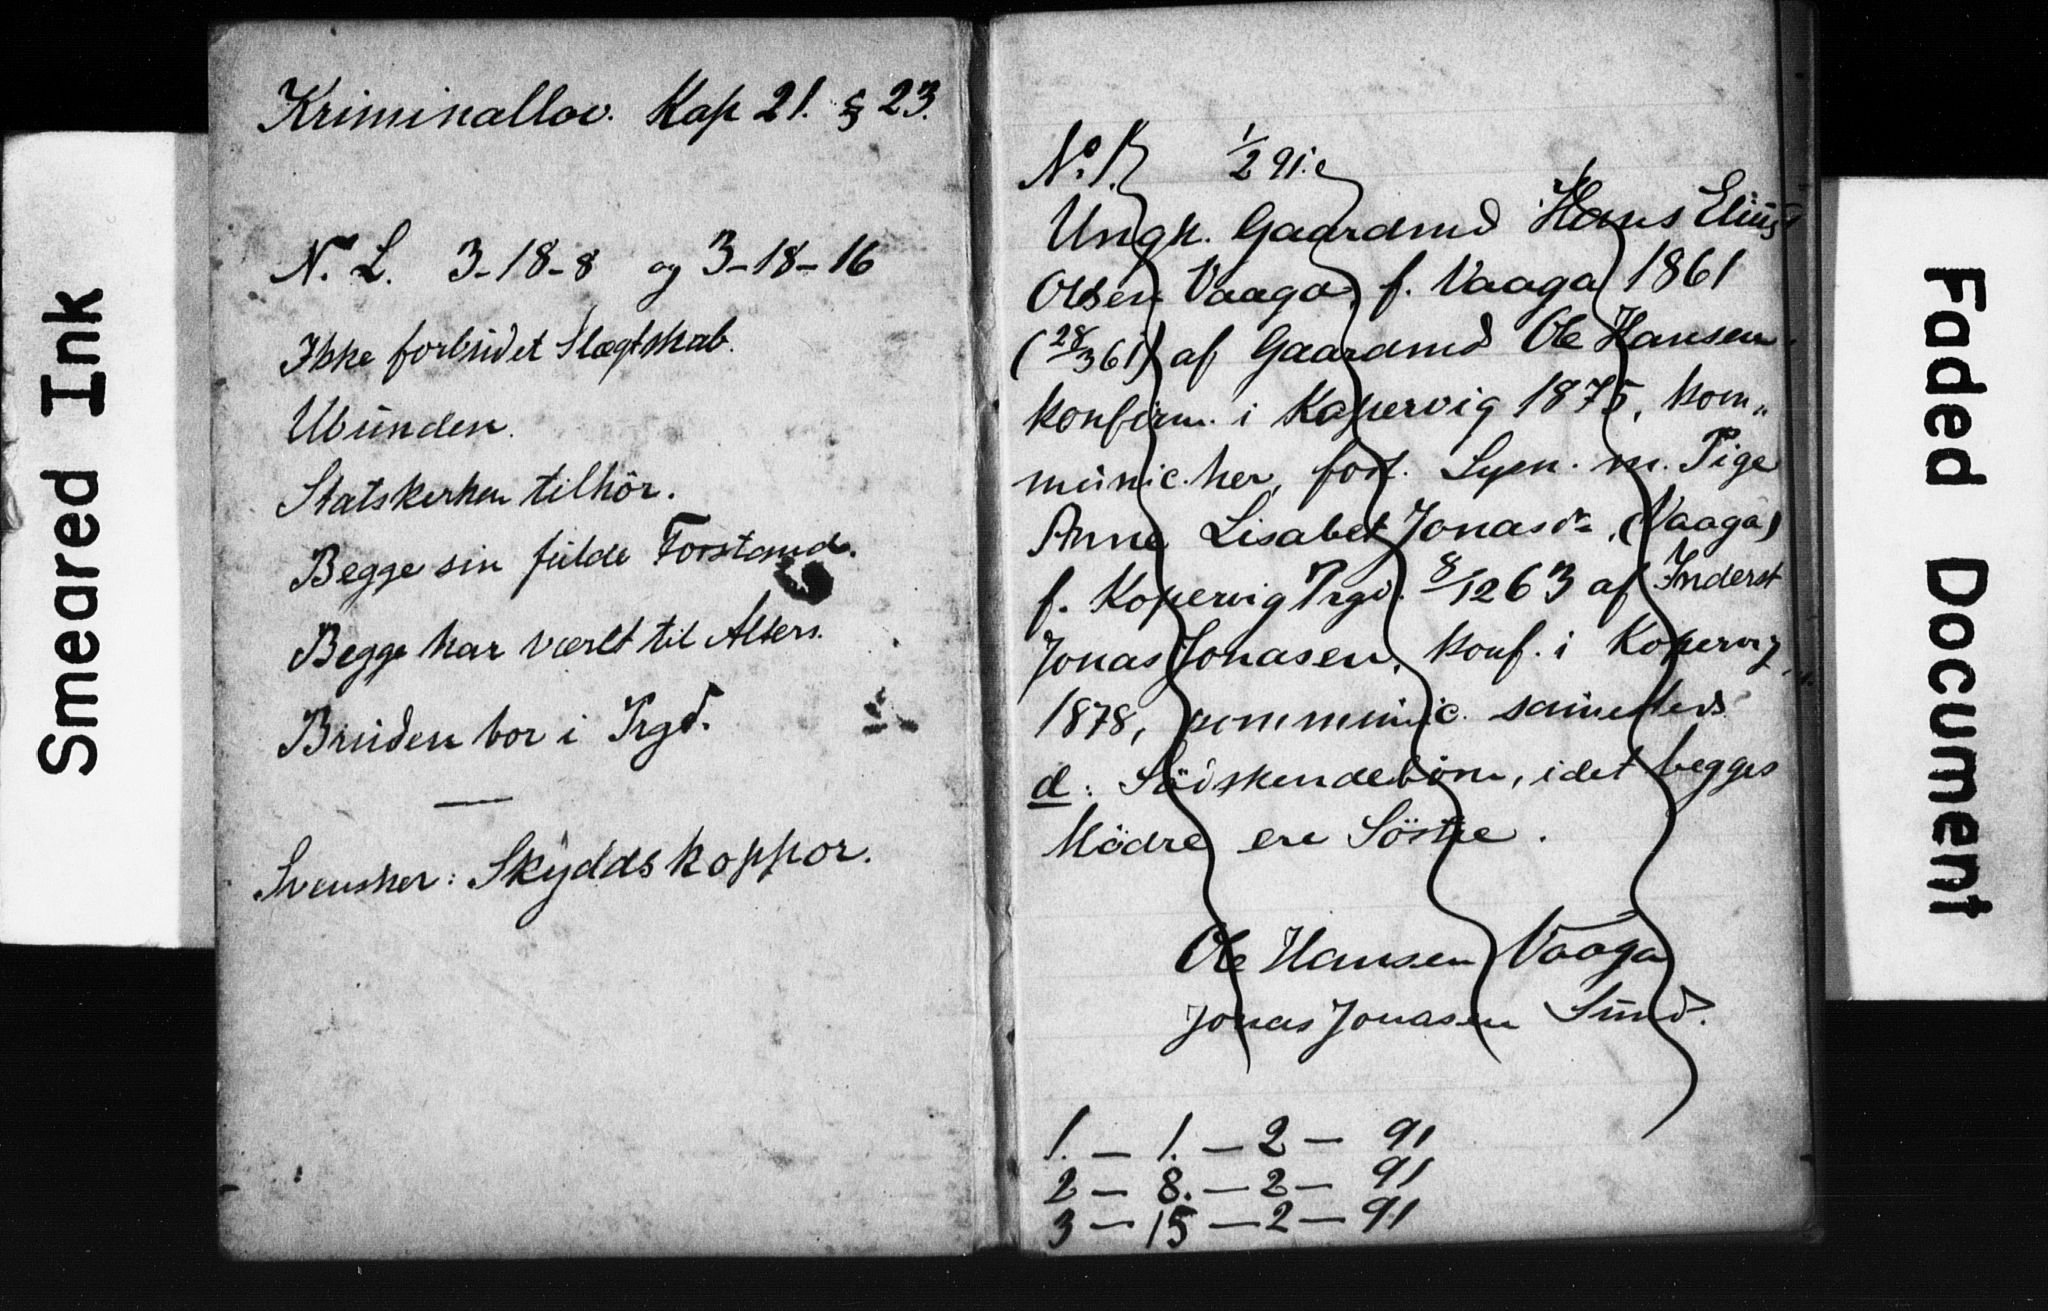 Smeared Ink
Kriminallov. Kap 21. § 23.
N. L. 3-18-8 og 3-18-16
Ikke forbudet Slægtskab.
Ubunden.
Statskirken tilhör.
Begge sin fulde Forstand.
Begge har været til Alters.
Bruden bor i Prgd.
Svensker: Skyddskoppor.
No. 1. 1/2 91.
Ungk. Gaardmd Hans Elias
Olsen Vaaga, f. Vaaga 1861
(28/3 61) af Gaardmd Ole Hansen,
konfirm. i Kopervig 1875, kom„
munic. her, m. Pige
Anne Lisabet Jonasdr. (Vaaga)
f. Kopervig Prgd. 8/12 63 af Inderst
Jonas Jonasen, konf. i Kopervig
1878, kommunic. samesteds
d: Södskendebörn, idet begges
Mödre ere Söstre.
Ole Hansen Vaaga
Jonas Jonasen Sund.
1. — 1. — 2 — 91
2 — 8. — 2 — 91
3 — 15 — 2 — 91
Faded Document